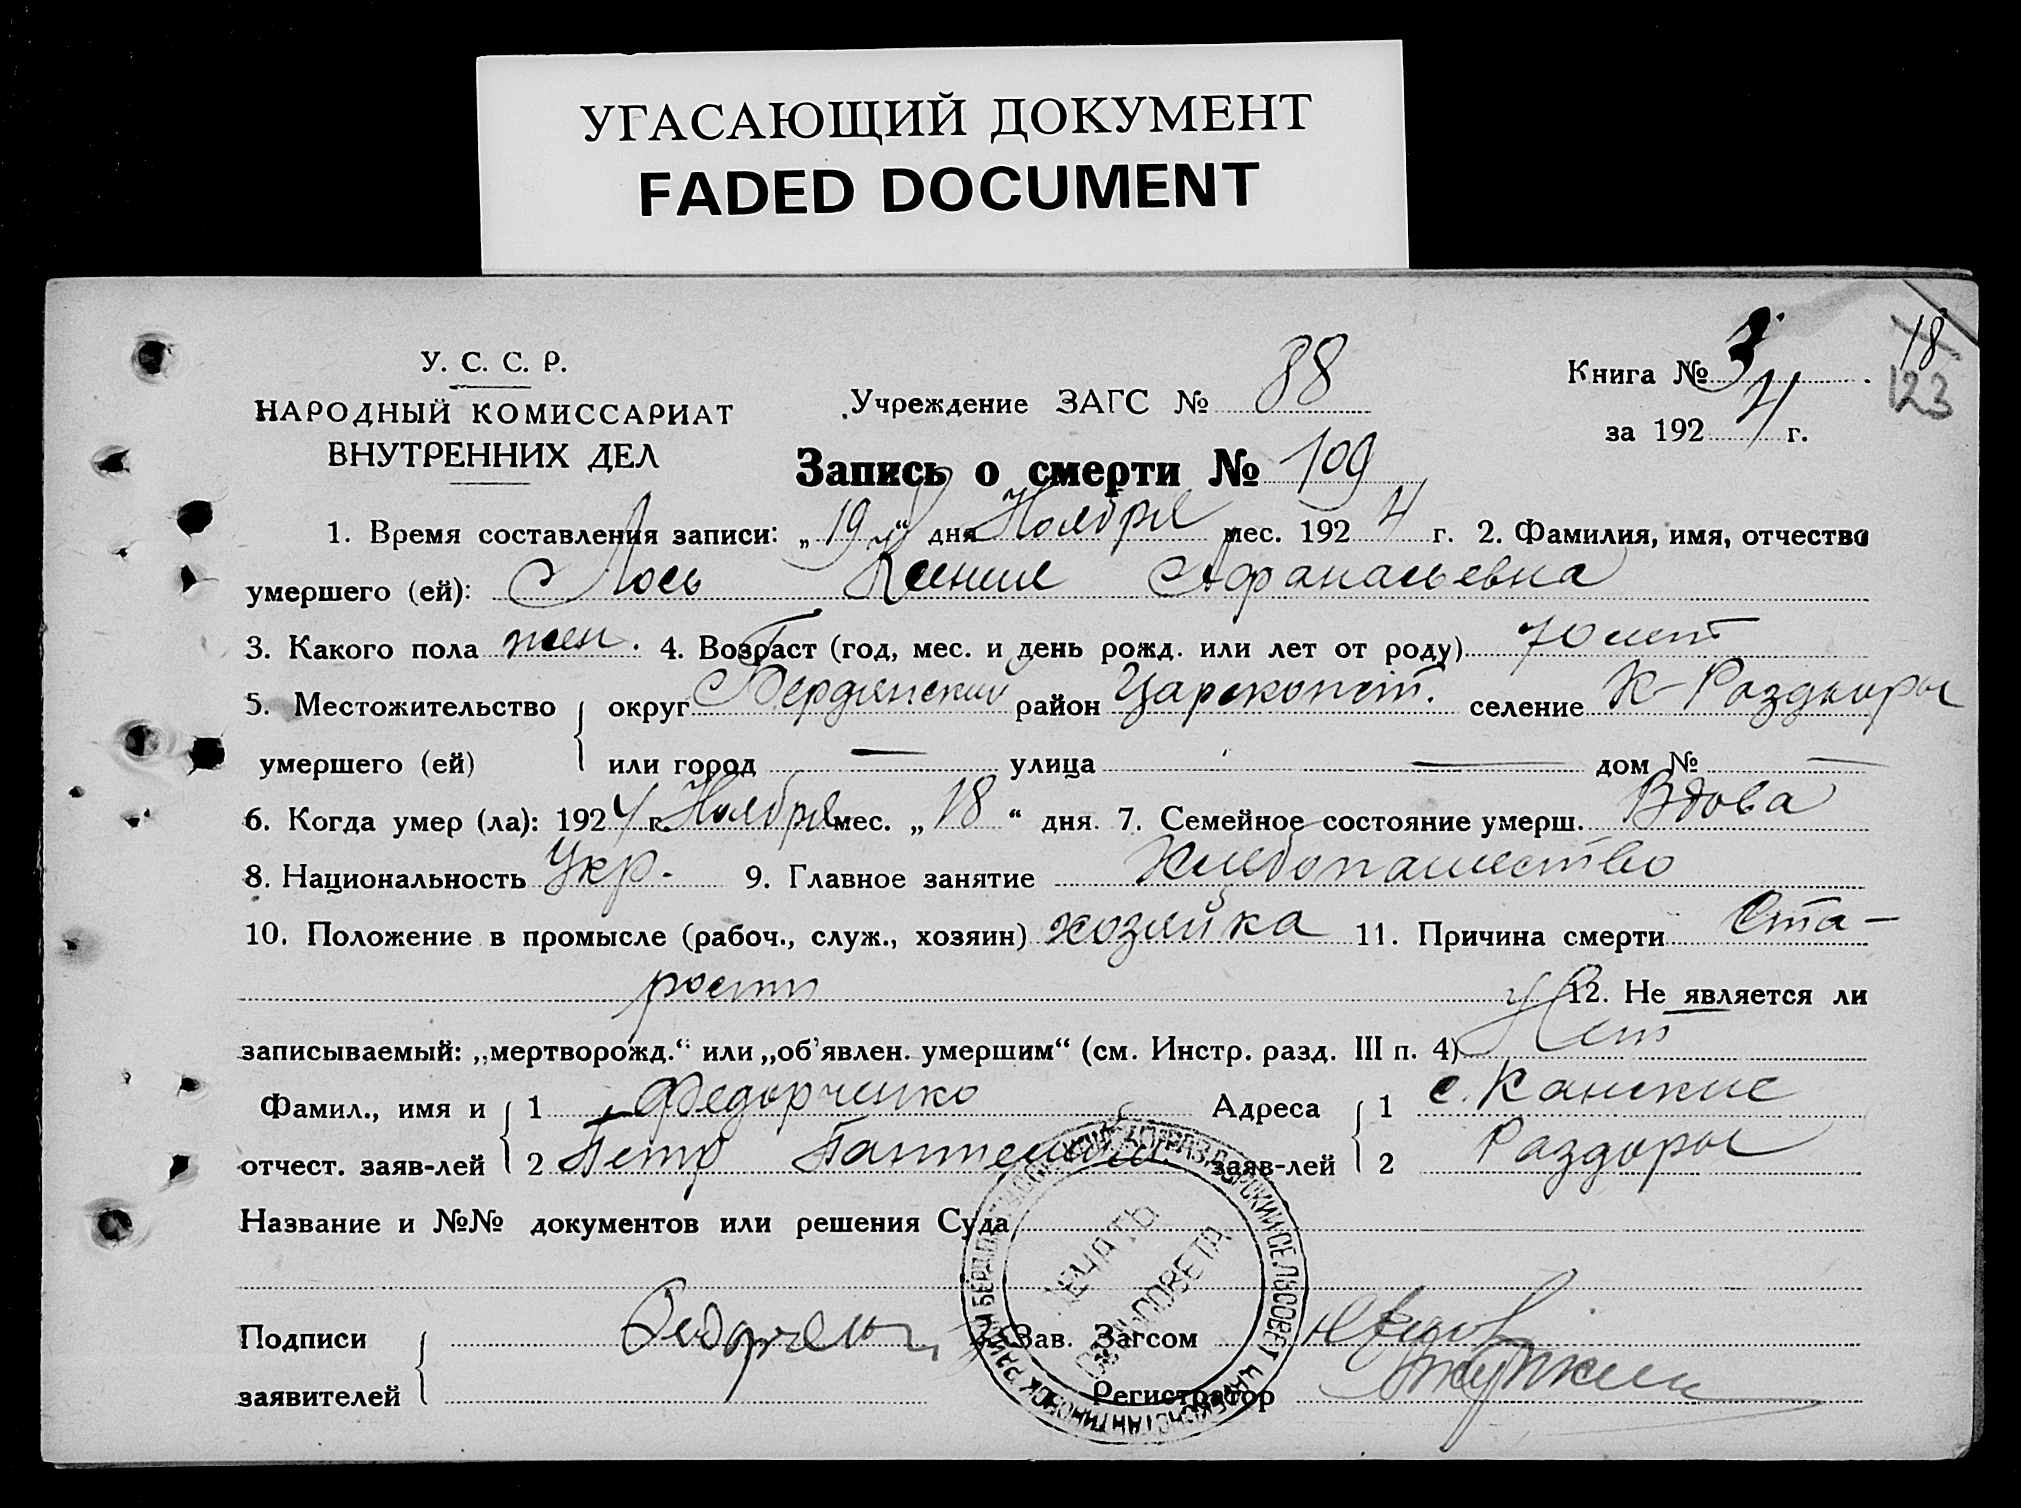 УГАСАЮЩИЙ ДОКУМЕНТ
FADED DOCUMENT
У. С. С. Р.
НАРОДНЫЙ КОМИССАРИАТ
ВНУТРЕННИХ ДЕЛ
Учреждение ЗАГС № 88
Книга № 3
за 1924 г.
18
123
Запись о смерти № 109
1. Время составления записи: „19“ дня Ноября мес. 1924 г. 2. Фамилия, имя, отчество
умершего (ей): Лось Ксения Афанасьевна
3. Какого пола жен. 4. Возраст (год, мес. и день рожд. или лет от роду) 70 лет
5. Местожительство округ Бердянский район Царекопст. селение К-Раздоры
умершего (ей) или город — улица — дом № —
6. Когда умер (ла): 1924 г. Ноября мес. „18“ дня 7. Семейное состояние умерш. Вдова
8. Национальность Укр. 9. Главное занятие Хлебопашество
10. Положение в промысле (рабоч., служ., хозяин) хозяйка 11. Причина смерти Ста-
рости 12. Не является ли
записываемый: „мертворожд.“ или „об'явлен. умершим“ (см. Инстр. разд. III п. 4) Нет
Фамил., имя и 1 Федорченко Адреса 1 с. Канские
отчест. заяв-лей 2 Петр заяв-лей 2 Раздоры
Название и №№ документов или решения Суда
ПЕЧАТЬ
СЕЛЬСОВЕТА
Подписи Зав. Загсом
заявителей Регистратор